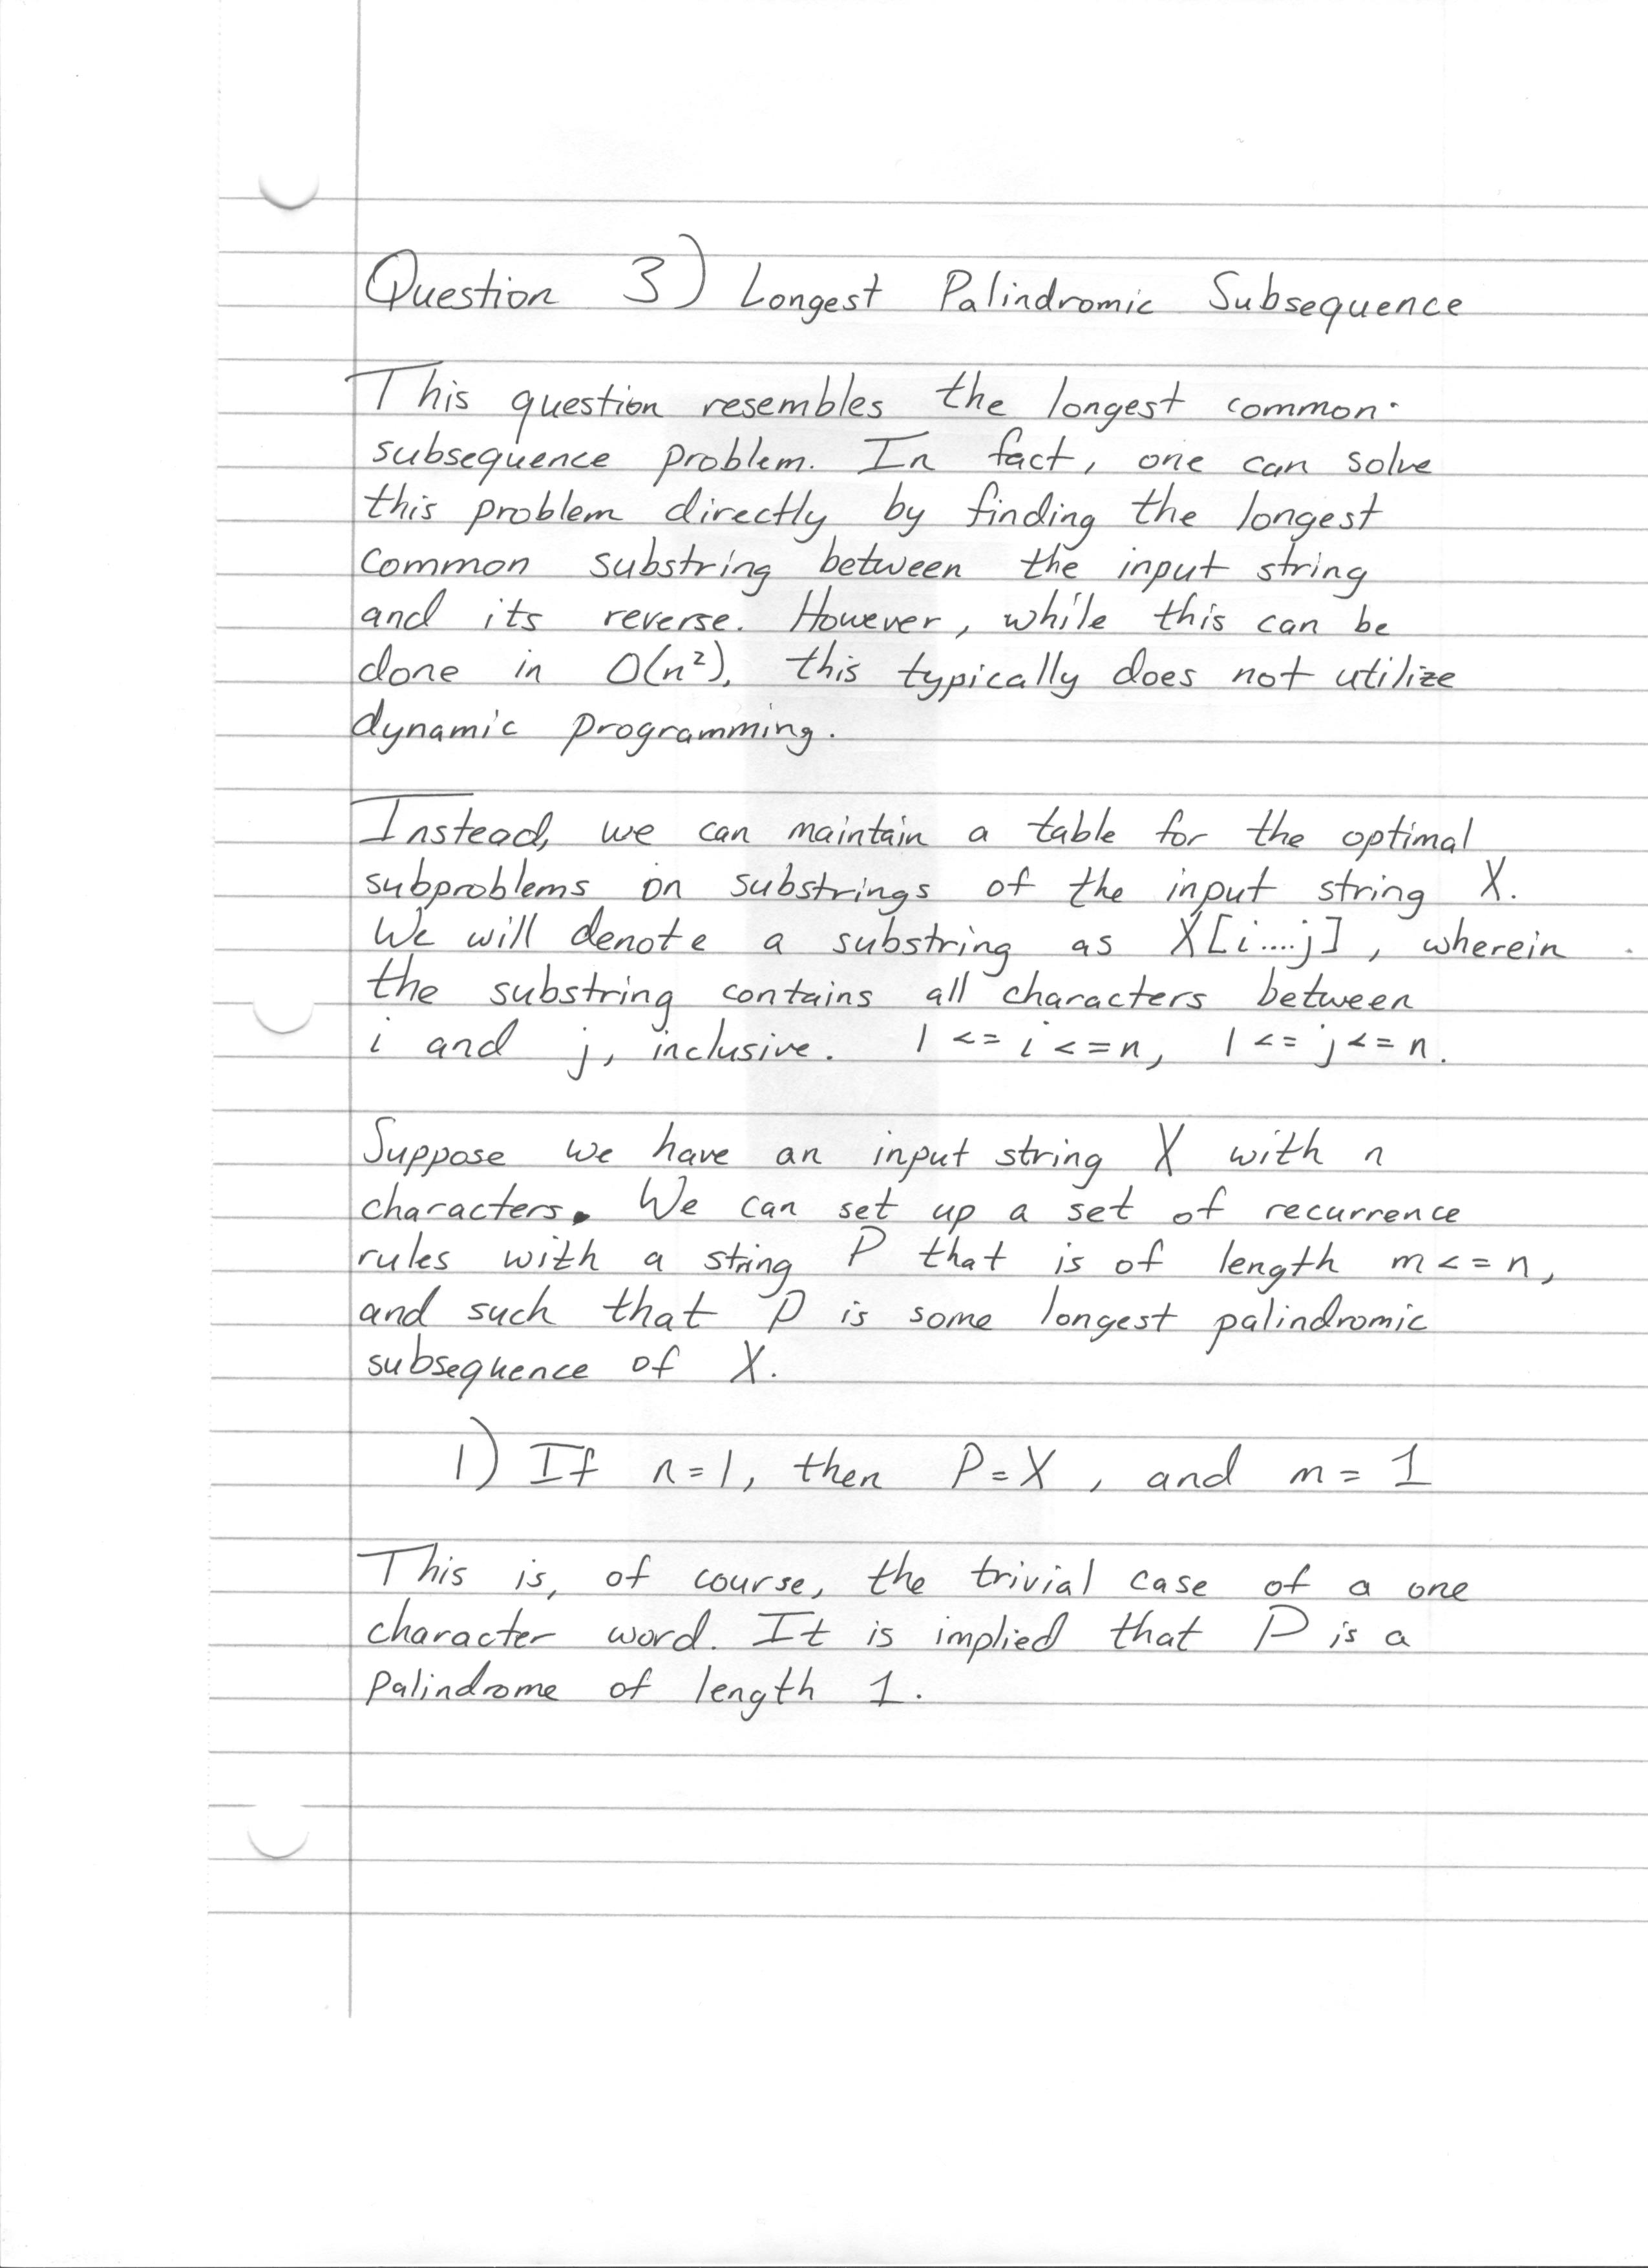 Question 3) Longest Palindromic Subsequence
This question resembles the longest common
subsequence problem. In fact, one can solve
this problem directly by finding the longest
common substring between the input string
and its reverse. However, while this can be
done in O(n²), this typically does not utilize
dynamic programming.
Instead, we can maintain a table for the optimal
subproblems on substrings of the input string X.
We will denote a substring as X[i....j], wherein
the substring contains all characters between
i and j, inclusive. 1 <= i <= n, 1 <= j <= n.
Suppose we have an input string X with n
characters. We can set up a set of recurrence
rules with a string P that is of length m <= n,
and such that P is some longest palindromic
subsequence of X.
1) If n=1, then P=X, and m = 1
This is, of course, the trivial case of a one
character word. It is implied that P is a
palindrome of length 1.